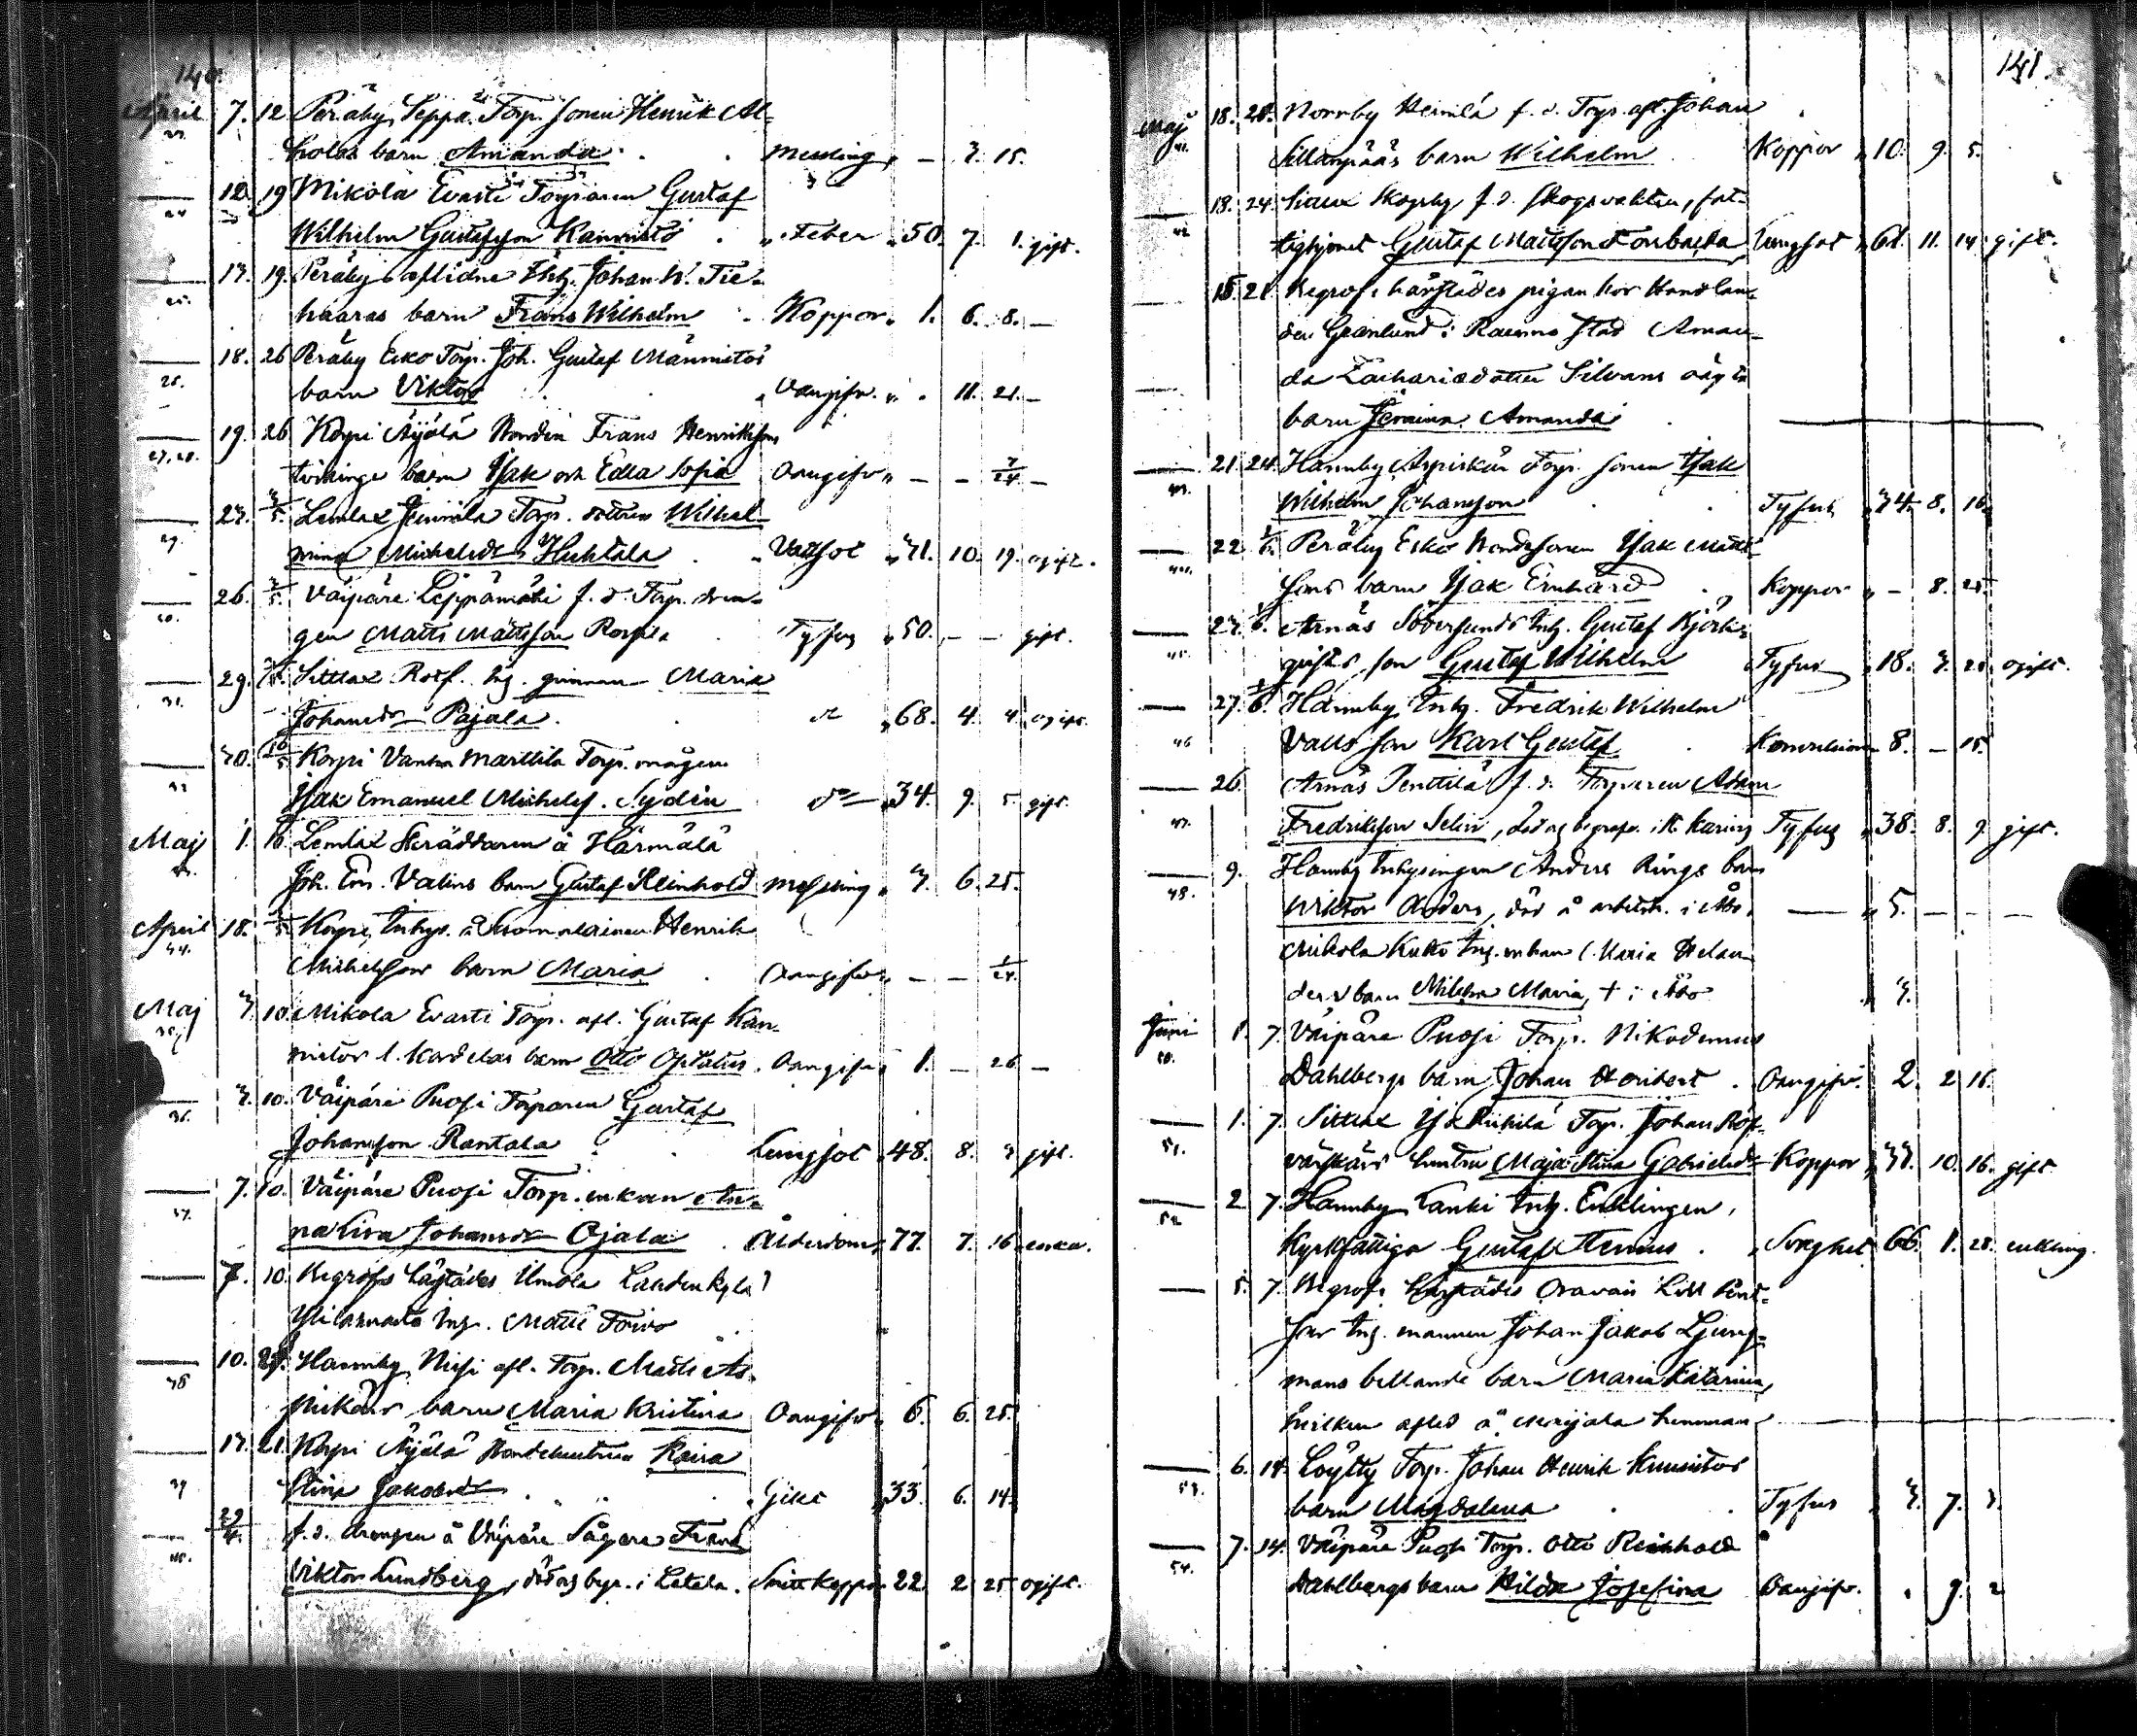 140.
April 7. 12 Peräby Seppä Torp. sonen Henrik Al-
holas barn Amanda. messling, - 3. 15.
12. 19 Mikola Evasti Torparen Gustaf
Wilhelm Gustafsson Kannisto. Feber 50. 7. 1. gift.
25. 17. 19. Peräby aflidne Inh. Johan W. Tie-
haaras barn Frans Wilhelm. Koppor. 1. 6. 8. -
18. 26 Peräby Esko Torp. Joh. Gustaf Männistös
26. barn Viktor Oangifv. 11. 21. -
19. 26 Korpi Äijälä Bonden Frans Henrikssons
27. 28. tvillinge barn Isak och Edla Sofia Oangifv - - 7/24 -
23. 3/5. Lemlax Junnila Torp. dottren Wilhel-
29. mina Michelsdr Huhtala. Vattsot 31. 10. 19. ogift.
26. 3/5. Väipäre Leppämäki f. d. Torp. dren-
gen Matts Mattsson Tyfus 50. - - gift.
29. Sittlax Rotf. hj. qvinnan Maria
31. Johansdr Pajala. do 68. 4. 4. ogift.
30. 10/5 Korpi Vanha Marttila Torp. mågen
Isak Emanuel Michelss. Sydén do 34. 9. 5. gift.
Maj 1. Lemlax Skräddaren å Härmälä
Joh. Em. Valins barn Gustaf Reinhold messling 3. 6. 25.
April 18. Korpi, Inhys. å Suomalainen Henrik
34. Michelssons barn Maria. Oangifv. - - 1/24.
Maj 3. 10. Mikola Evasti Torp. afl. Gustaf Kan-
nistos l. Kordelas barn Otto Optatus. Oangifv. 1. - 26 -
3. 10. Väipäre Puosi Torparen Gustaf
36. Johansson Rantala. Lungsot 48. 8. 3 gift.
7. 10. Väipäre Puosi Torp. enkan An-
37. na Lisa Johansdr Ojala. Ålderdom, 77. 7. 16 enka.
7. 10. Begrofs härstädes Urnola Landenkylä
Ylitarvasto Inh. Matts Toivo
10. Hannby Nisi afl. Torp. Matts As-
38 pikärs barn Maria Kristina Oangifv. 6. 6. 25.
17. 21. Korpi Äijälä Bondehustrun Kaisa
39 Stina Jakobsdr. Gikt 33. 6. 14.
22/4. f. d. drengen å Väipäre Sågare Frans
40. Viktor Lundberg, död och begr. i Letala. Smittkoppor 22 2 25 ogift.
141.
Maj 18. 20. Norrby Heinilä f. d. Torp. afl. Johan
41. Sillanpääs barn Wilhelm Koppor 10. 9. 5.
18. 24. Lieux Skogsby f. d. Skogsvakten, fat-
42. tighjonet Gustaf Mattsson Forsbacka, Lungsot 61. 11. 14 gift.
15. 21. Begrofs härstädes pigan hos Handlan-
den Granlund i Raumo stad Aman-
da Zachariædotter Silvans oägta
barn Jemima Amanda
21. 24. Hannby Aspiskär Torp. sonen Isak
43. Wilhelm Johansson Tyfus 34. 8. 16.
22. Peräby Esko Bondesonen Isak Matts-
44. sons barn Isak Ernhard. Koppor - 8. 25.
23. Arnäs Södersunds Inh. Gustaf Björk-
45. qvists son Gustaf Wilhelm Tyfus 18. 3. 20 ogift.
27. 6. Hannby Inh. Fredrik Wilhelm
46 Valls son Karl Gustaf. Konvulsion 8. - 15.
26. Arnäs Penttilä f. d. Torparen Adam
47. Fredriksson Selin, död och begrafv. i St. Karins Tyfus 38. 8. 9. gift.
9. Hannby Inhysingen Anders Rings barn
48. Wiktor Anders, död å arbetsh. i Åbo. - 5. - - -
Mikola Kutto Inh. enkan l. Maria Helan-
ders barn Milka Maria, + i Åbo 3.
Juni 1. 7. Väipäre Puosi Torp. Nikodemus
50. Dahlbergs barn Johan Heribert. Oangifv. 2. 2 16.
1. 7. Sittlax Torp. Johan
51. hustru Maja Stina Gabrielsdr Koppor 37. 10. 16. gift.
2 7. Hannby Lanki Inh. Enklingen,
52 Kyrkfattiga Gustaf Henius. Svaghet 66. 1. 28. enkling.
5. 7. Begrofs härstädes Oravais Lill
Inh. mannen Johan Jakob Ljung-
mans bettlande barn Maria Katarina,
hvilken afled å Marjala hemman
6. 14. Löytty Torp. Johan Henrik Kuusistos
53. barn Magdalena. Tyfus 3. 7. 3.
7. 14. Väipäre Puosi Torp. Otto Reinhold
54. Dahlbergs barn Hilda Josefina Oangifv. 9. 2